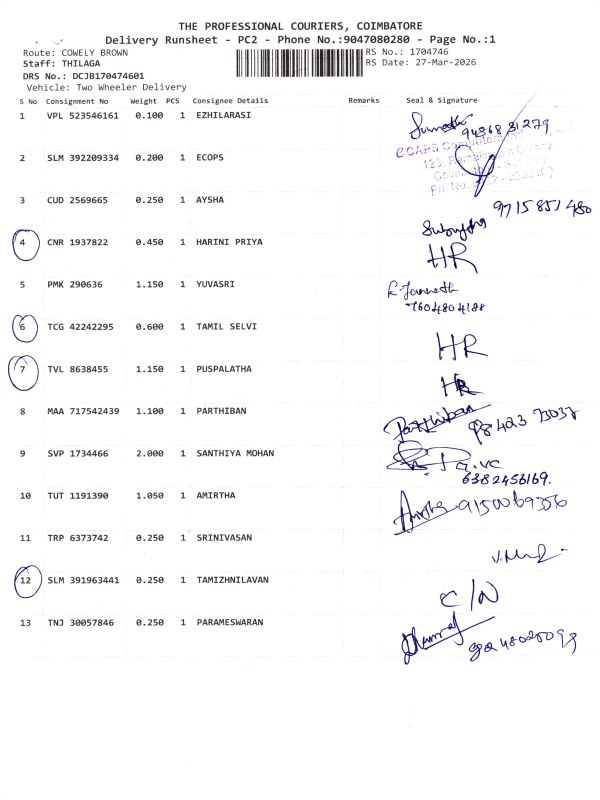 THE PROFESSIONAL COURIERS, COIMBATORE
Delivery Runsheet - PC2 - Phone No.:9047080280 - Page No.:1
Route: COWELY BROWN RS No.: 1704746
Staff: THILAGA RS Date: 27-Mar-2026
DRS No.: DCJB170474601
Vehicle: Two Wheeler Delivery
S No Consignment No Weight PCS Consignee Details Remarks Seal & Signature
1 VPL 523546161 0.100 1 EZHILARASI
2 SLM 392209334 0.200 1 ECOPS
3 CUD 2569665 0.250 1 AYSHA 9715851480
4 CNR 1937822 0.450 1 HARINI PRIYA HR
5 PMK 290636 1.150 1 YUVASRI 7604804188
6 TCG 42242295 0.600 1 TAMIL SELVI HR
7 TVL 8638455 1.150 1 PUSPALATHA HR
8 MAA 717542439 1.100 1 PARTHIBAN Parthiban 98423 73037
9 SVP 1734466 2.000 1 SANTHIYA MOHAN 6382456169.
10 TUT 1191390 1.050 1 AMIRTHA Amirtha 9150069356
11 TRP 6373742 0.250 1 SRINIVASAN
12 SLM 391963441 0.250 1 TAMIZHNILAVAN C/N
13 TNJ 30057846 0.250 1 PARAMESWARAN